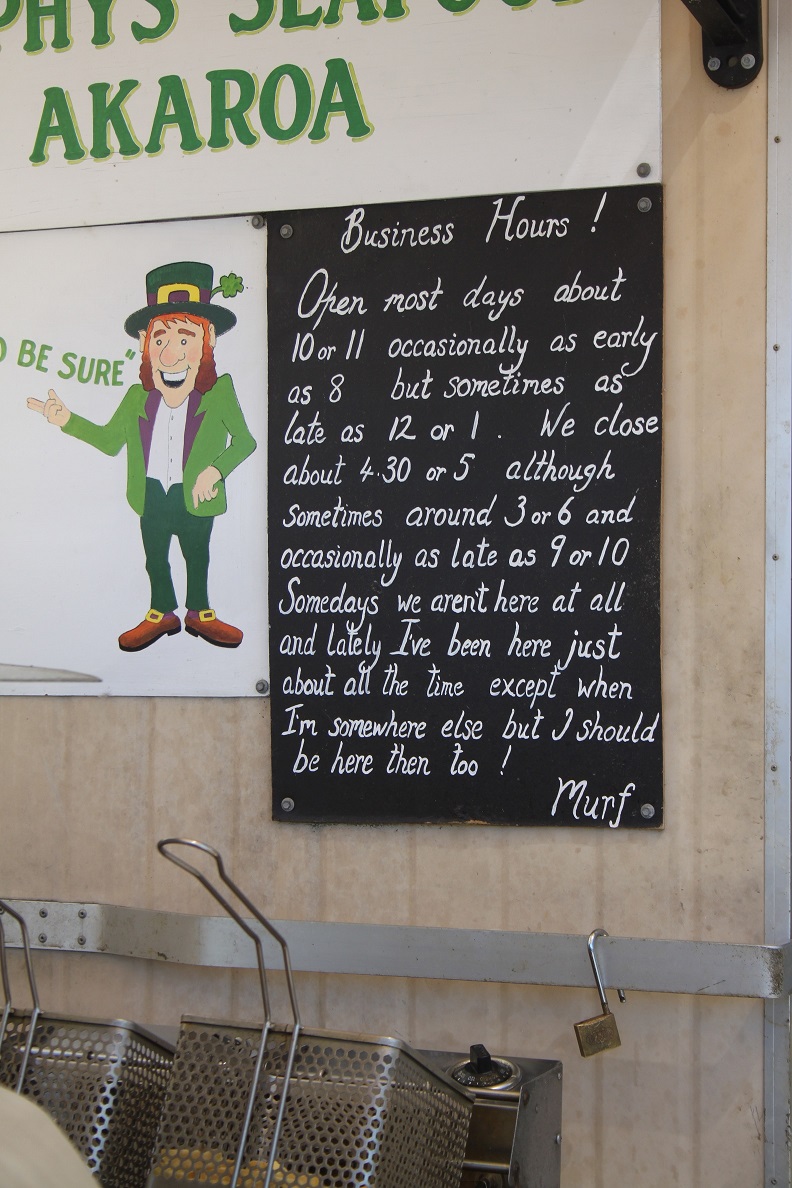 PHYS SEAFOOD
AKAROA
O BE SURE"
Business Hours !
Open most days about
10 or 11 occasionally as early
as 8 but sometimes as
late as 12 or 1 . We close
about 4.30 or 5 although
sometimes around 3 or 6 and
occasionally as late as 9 or 10
Somedays we aren't here at all
and lately I've been here just
about all the time except when
I'm somewhere else but I should
be here then too !
Murf